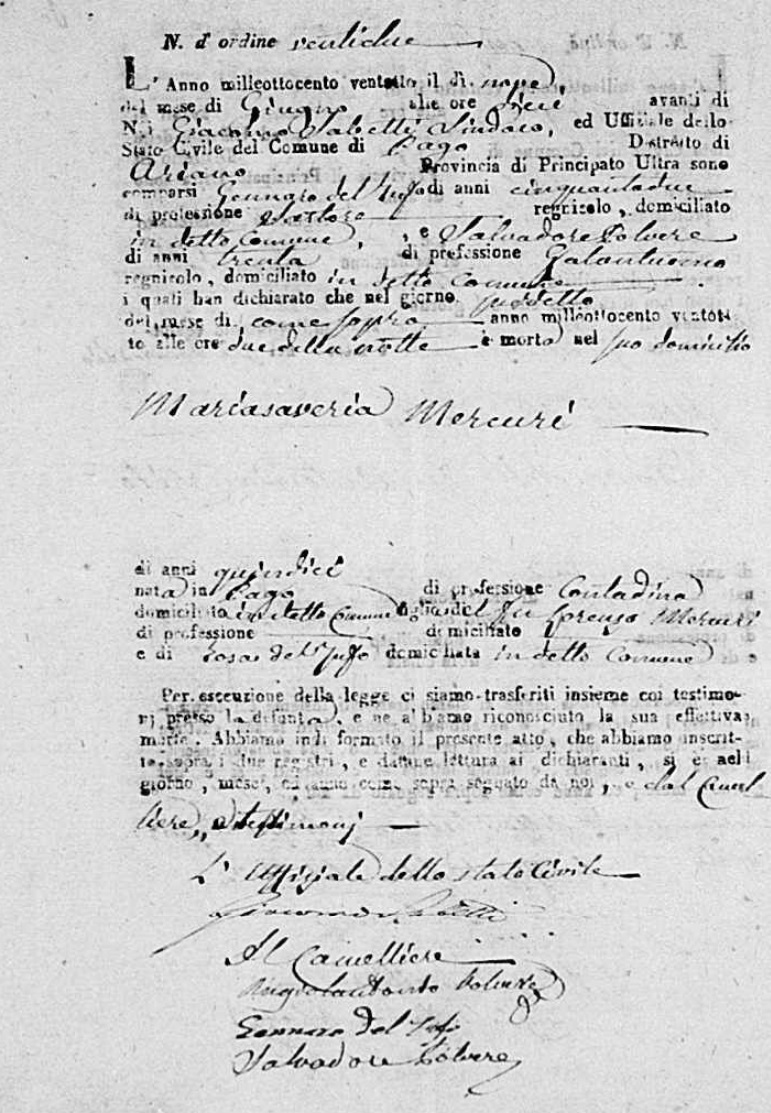 N. d' ordine ventidue
L' Anno milleottocento ventotto il dì nove
del mese di Giugno alle ore avanti di
Noi Giacomo Sabetti Sindaco, ed Uffiziale dello
Stato Civile del Comune di Pago Distretto di
Ariano Provincia di Principato Ultra sono
comparsi Gennaro del Tufo di anni cinquantadue
di professione Sartore regnicolo, domiciliato
in detto Comune, , e Salvadore Polvere
di anni trenta di professione Galantuomo
regnicolo, domiciliato in detto Comune
i quali han dichiarato che nel giorno suddetto
del mese di come sopra anno milleottocento ventot-
to alle ore due della notte è morta nel suo domicilio
Mariasaveria Mercuri
di anni quindici
nata in Pago di professione Contadina
domiciliata in detto Comune figlia del fu Lorenzo Mercuri
di professione domiciliato
e di Rosa del Tufo domiciliata in detto Comune
Per esecuzione della legge ci siamo trasferiti insieme coi testimo-
nj presso la defunta, e ne abbiamo riconosciuto la sua effettiva
morte. Abbiamo indi formato il presente atto, che abbiamo inscrit-
to sopra i due registri, e datane lettura ai dichiaranti, si è nel
giorno, mese, ed anno come sopra segnato da noi, e dal Cancel
liere, e testimonj
L' Uffiziale dello stato Civile
Giacomo Sabetti
Il Cancelliere
Angiolantonio Polvere
Gennaro del Tufo
Salvadore Polvere